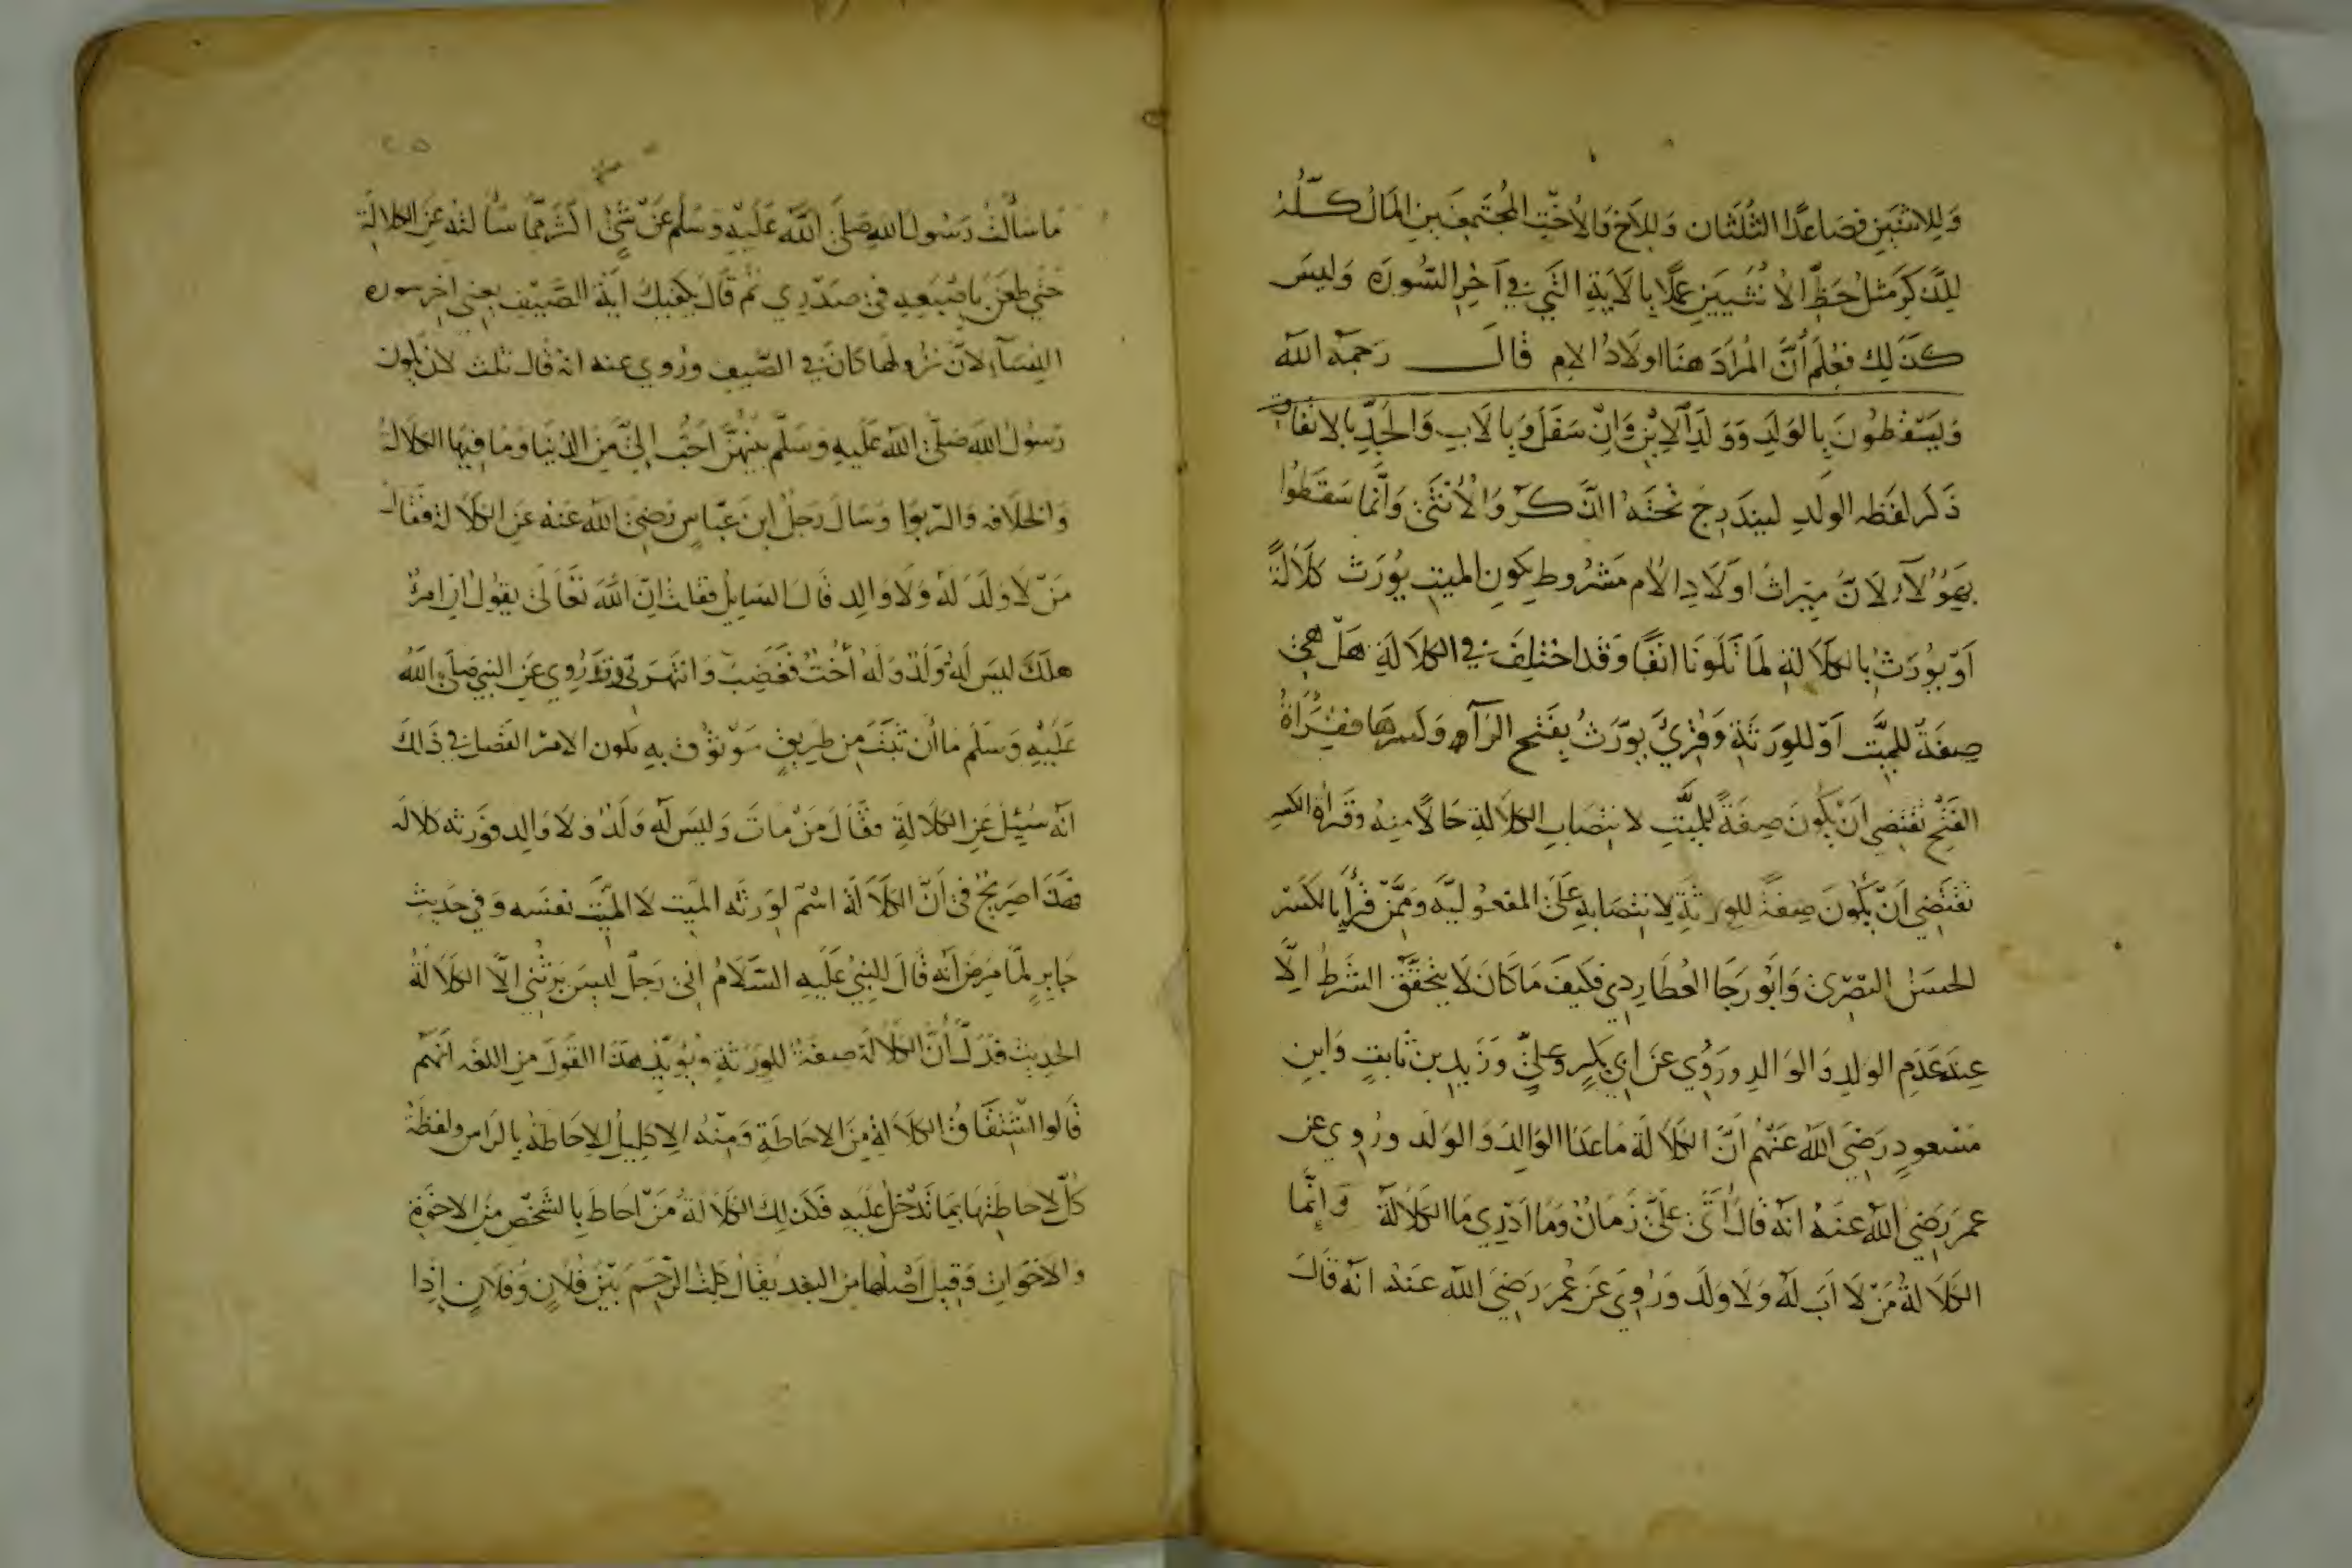 وَلِلاثنَين فصَاعدًا الثُلُثَان وَلِلاَخ وَالاُخْتِ المجُتَمِعَينِ المَالُ كُلّهُ
لِلذَّكَرِ مثلُ حَظِّ الاُنثَيَينِ عَمَلًا بِالاَيَةِ الَّتي في آخِرِ السُّورَة وَليسَ
كَذَلِكَ فَعُلِمَ أَنَّ المُرَادَ هنَا اولَادُ الام قَالَ رَحِمَهُ الله
وَيَسْقُطُونَ بِالوَلَدِ وَوَلَدِ الاِبْنِ وَاِنْ سَفَلَ وَبِالاَبِ وَالجَدِّ بِالاتفَاقِ
ذَكَرَ لفَظه الولَدِ ليَندَرِجَ تَحْتَهُ الذَّكَرُ وَالْأُنْثَى وَاِنَّما سَقَطُوا
بِهَؤُلآءِ لاَنَّ مِيرَاثَ اولَادِ الاُم مَشْرُوط بِكَونِ الميتِ يُورَث كَلَالَةً
اَوْ يُورَثُ بِالكَلَالَةِ لمَا تَلَونَا انفًا وَقَد اختلِفَ في الكَلَالَةِ هَلْ هِيَ
صِفَةٌ للمَيِّتِ اَوْ للوَرَثَةِ وَقُرِيَ يُورَثُ بِفَتحِ الرَّآءِ وَكَسرِهَا فقِرَاةُ
الفَتْحِ تقتَضِي اَنْ يَكُونَ صِفَةً لِلمَيِّتِ لانتصَابِ الكَلَالَةِ حَالًا مِنهُ وقَرَاة الكَسرِ
تَقتَضِي اَنْ يَكُونَ صِفَةً للوَرثَةِ لانتصَابِهِ عَلَى المفعُوليَّهِ وَمِمَّنْ قَرَأَ بِالكَسْرِ
الحسَنُ البَصْرِي وَاَبُو رَجَا العُطَارِدِي فكَيفَ مَا كَانَ لَا يَتحَقَّقُ الشَرطُ اِلَّا
عِندَ عَدَمِ الولَدِ وَالوَالدِ وَرُوِي عَن ابي بَكرٍ وعَليٍّ وَزَيدِ بن ثَابتٍ وَابنِ
مَسْعودٍ رَضِيَ اللّٰهُ عَنْهُمْ انَّ الكَلَالَةَ مَاعدَا الوَالِدَ وَالوَلَد ورُوِي عن
عمرَ رَضِيَ اللّٰهُ عَنهُ انّهُ قَالَ أَتَى عَلَيَّ زَمَانٌ وَمَا اَدْرِي مَا الكَلَالَةُ وَاِنَّما
الكَلَالَةُ مَنْ لَا اَبَ لَهُ وَلَا وَلَد وَرُوِي عَن عُمرَ رَضِيَ اللّٰه عَنهُ انّه قَالَ
٢٥
مَا سَاَلتُ رَسُولَ اللهِ صَلَّى اللّٰهُ عَلَيهِ وَسَلَّم عَنْ شَيْءٍ اكثَر مِمَّا سَالتهُ عَنِ الكَلَالَةِ
حَتّي طعَنَ بِاصْبَعِهِ في صَدْرِي ثمّ قَالَ يَكفِيكَ ايَةُ الصَّيفِ يعنِي اخِر سوره
النِسَآءِ لاَنَّ نزُولهَا كَانَ في الصَّيفِ ورُوي عنه انهُ قَالَ ثلث لَاَنْ يكون
رَسُولُ اللهِ صَلَّى اللّٰهُ عَلَيهِ وَسَلَّم بَيَّنهُنَّ اَحَبُّ اِليَّ مِنَ الدُّنيَا وَمَا فِيهَا الكَلَالَةُ
وَالخلَافَه وَالرِّبَوا وَسَالَ رَجُلٌ ابنَ عَبّاسٍ رَضِيَ اللّٰهُ عَنهُ عَنِ الكَلَالَةِ فقَالَ
مَنْ لَا وَلَدَ لَهُ وَلَا وَالِد قَالَ السَايِلُ فقُلتُ اِنَّ اللّٰهَ تَعَالَى يقُولُ اِنِ امرُؤٌ
هلَكَ ليسَ لَهُ وَلَدٌ وَلَهُ اُخْتٌ فَغَضِبَ وَانتَهَرَنِي وَقَد رُوِي عَنِ النبيِ صَلَّى اللّٰهُ
عَلَيهِ وَسَلَّم مَا اَن ثَبَتَ مِن طَرِيقٍ مَوْثوُقٍ بِهِ يكون الامرَ الفَصل في ذَالكَ
انّهُ سُئِلَ عَنِ الكَلَالَةِ فقَالَ مَنْ مَاتَ وَليسَ لَهُ وَلَدٌ وَلَا وَالِد فوَرثَته كلَالَه
فهَذَا صَرِيحٌ في اَنَّ الكَلَالَة اسْم لوَرثَه الميت لَا الميِّتِ نفسَه وَفي حَدِيثِ
جَابِرٍ لَمّا مَرِضَ اَنّه قَالَ للنبِيِّ عَلَيهِ السَّلَامُ اِنّي رَجُلٌ ليسَ يَرثُنِي اِلَّا الكَلَالَةُ
الحديثَ فَدَلَّ اَنَّ الكَلَالَةَ صِفَةٌ للوَرَثَةِ وَيُؤَيِّدُ هَذَا القَولَ مِن اللغَه اَنّهُمْ
قَالوا اشْتقَاقُ الكَلَالَةِ مِنَ الاحَاطَةِ وَمِنهُ الاِكلِيلُ لاِحَاطتهُ بِالرَاسِ ولفظَةُ
كُلّ لاِحَاطتِهَا بِمَا تَدْخُلُ عَلَيهِ فَكَذلِكَ الكَلَالَةُ مَنْ اَحَاطَ بِالشَّخْصِ مِنَ الاخوَة
وَالاخَوَاتِ وَقِيلَ اَصْلهَا مِن البعد يُقَالُ كَلّتِ الرَّحِمُ بَيْنَ فُلَانٍ وَفُلَانٍ اِذَا